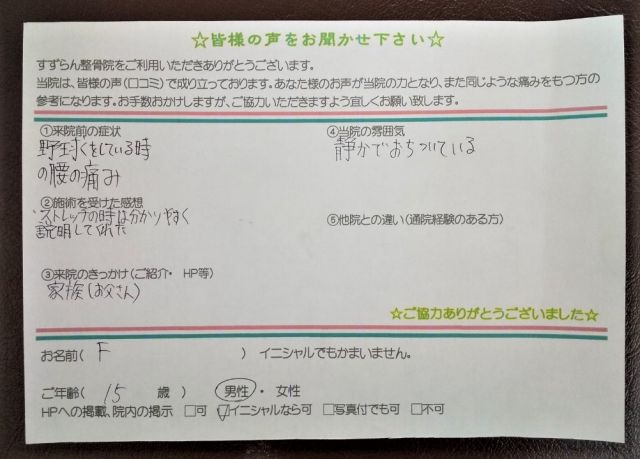 ☆皆様の声をお聞かせ下さい☆
すずらん整骨院をご利用いただきありがとうございます。
当院は、皆様の声(口コミ)で成り立っております。あなた様のお声が当院の力となり、また同じような痛みをもつ方の
参考になります。お手数おかけしますが、ご協力いただきますよう宜しくお願い致します。
①来院前の症状
野球をしている時
の腰の痛み
②施術を受けた感想
ストレッチの時は分かりやすく
説明してくれた
③来院のきっかけ(ご紹介・ HP等)
家族(お父さん)
④当院の雰囲気
静かでおちついている
⑤他院との違い(通院経験のある方)
☆ご協力ありがとうございました☆
お名前( F ) イニシャルでもかまいません。
ご年齢( 15 歳 ) 男性・ 女性
HPへの掲載、院内の掲示 □可 ☑イニシャルなら可 □写真付でも可 □不可